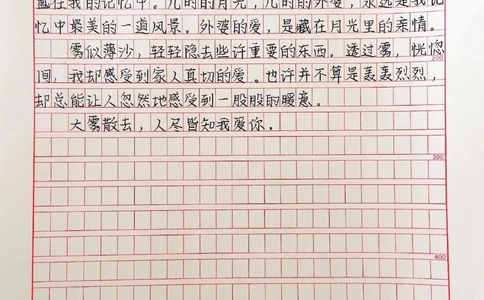 在我的记忆中。儿时的月光，儿时的外婆，永远是我记
忆中最美的一道风景。外婆的爱，是藏在月光里的亲情。
雾似薄沙，轻轻隐去些许重要的东西。透过雾，恍惚
200
间，我却感受到家人真切的爱。也许并不算是轰轰烈烈，
却总能让人忽然地感受到一股股的暖意。
大雾散去，人尽皆知我爱你。
300
400